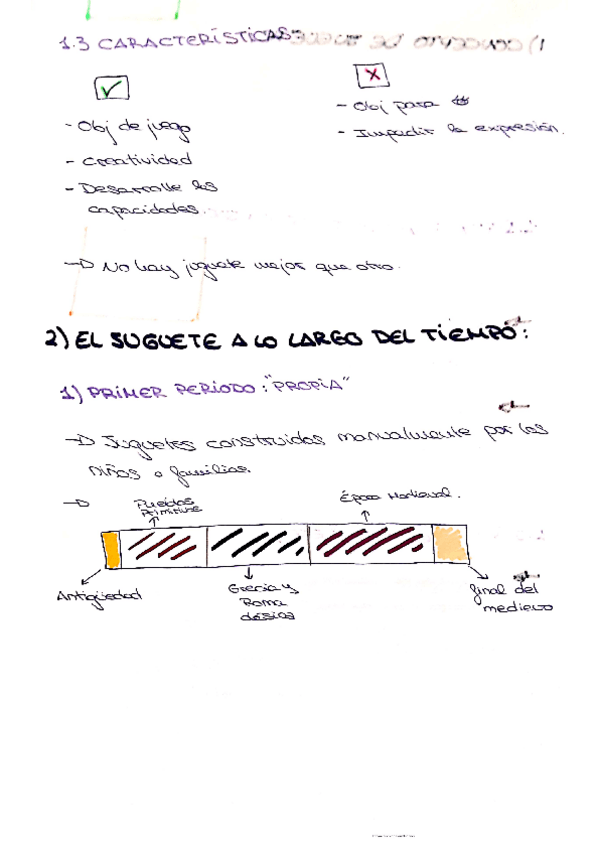 1.3 CARACTERÍSTICAS
- Obj de juego
- Creatividad
- Desarrolle las
capacidades.
- Obj para
- Impedir la expresión.
→ No hay juguete mejor que otro.
2) EL JUGUETE A LO LARGO DEL TIEMPO:
1) PRIMER PERÍODO: "PROPIA"
→ Juguetes construidos manualmente por los
niños o familias.
→
Pueblos
Primitivos
Época Medieval.
Antigüedad
Grecia y
Roma
clásica
final del
medievo